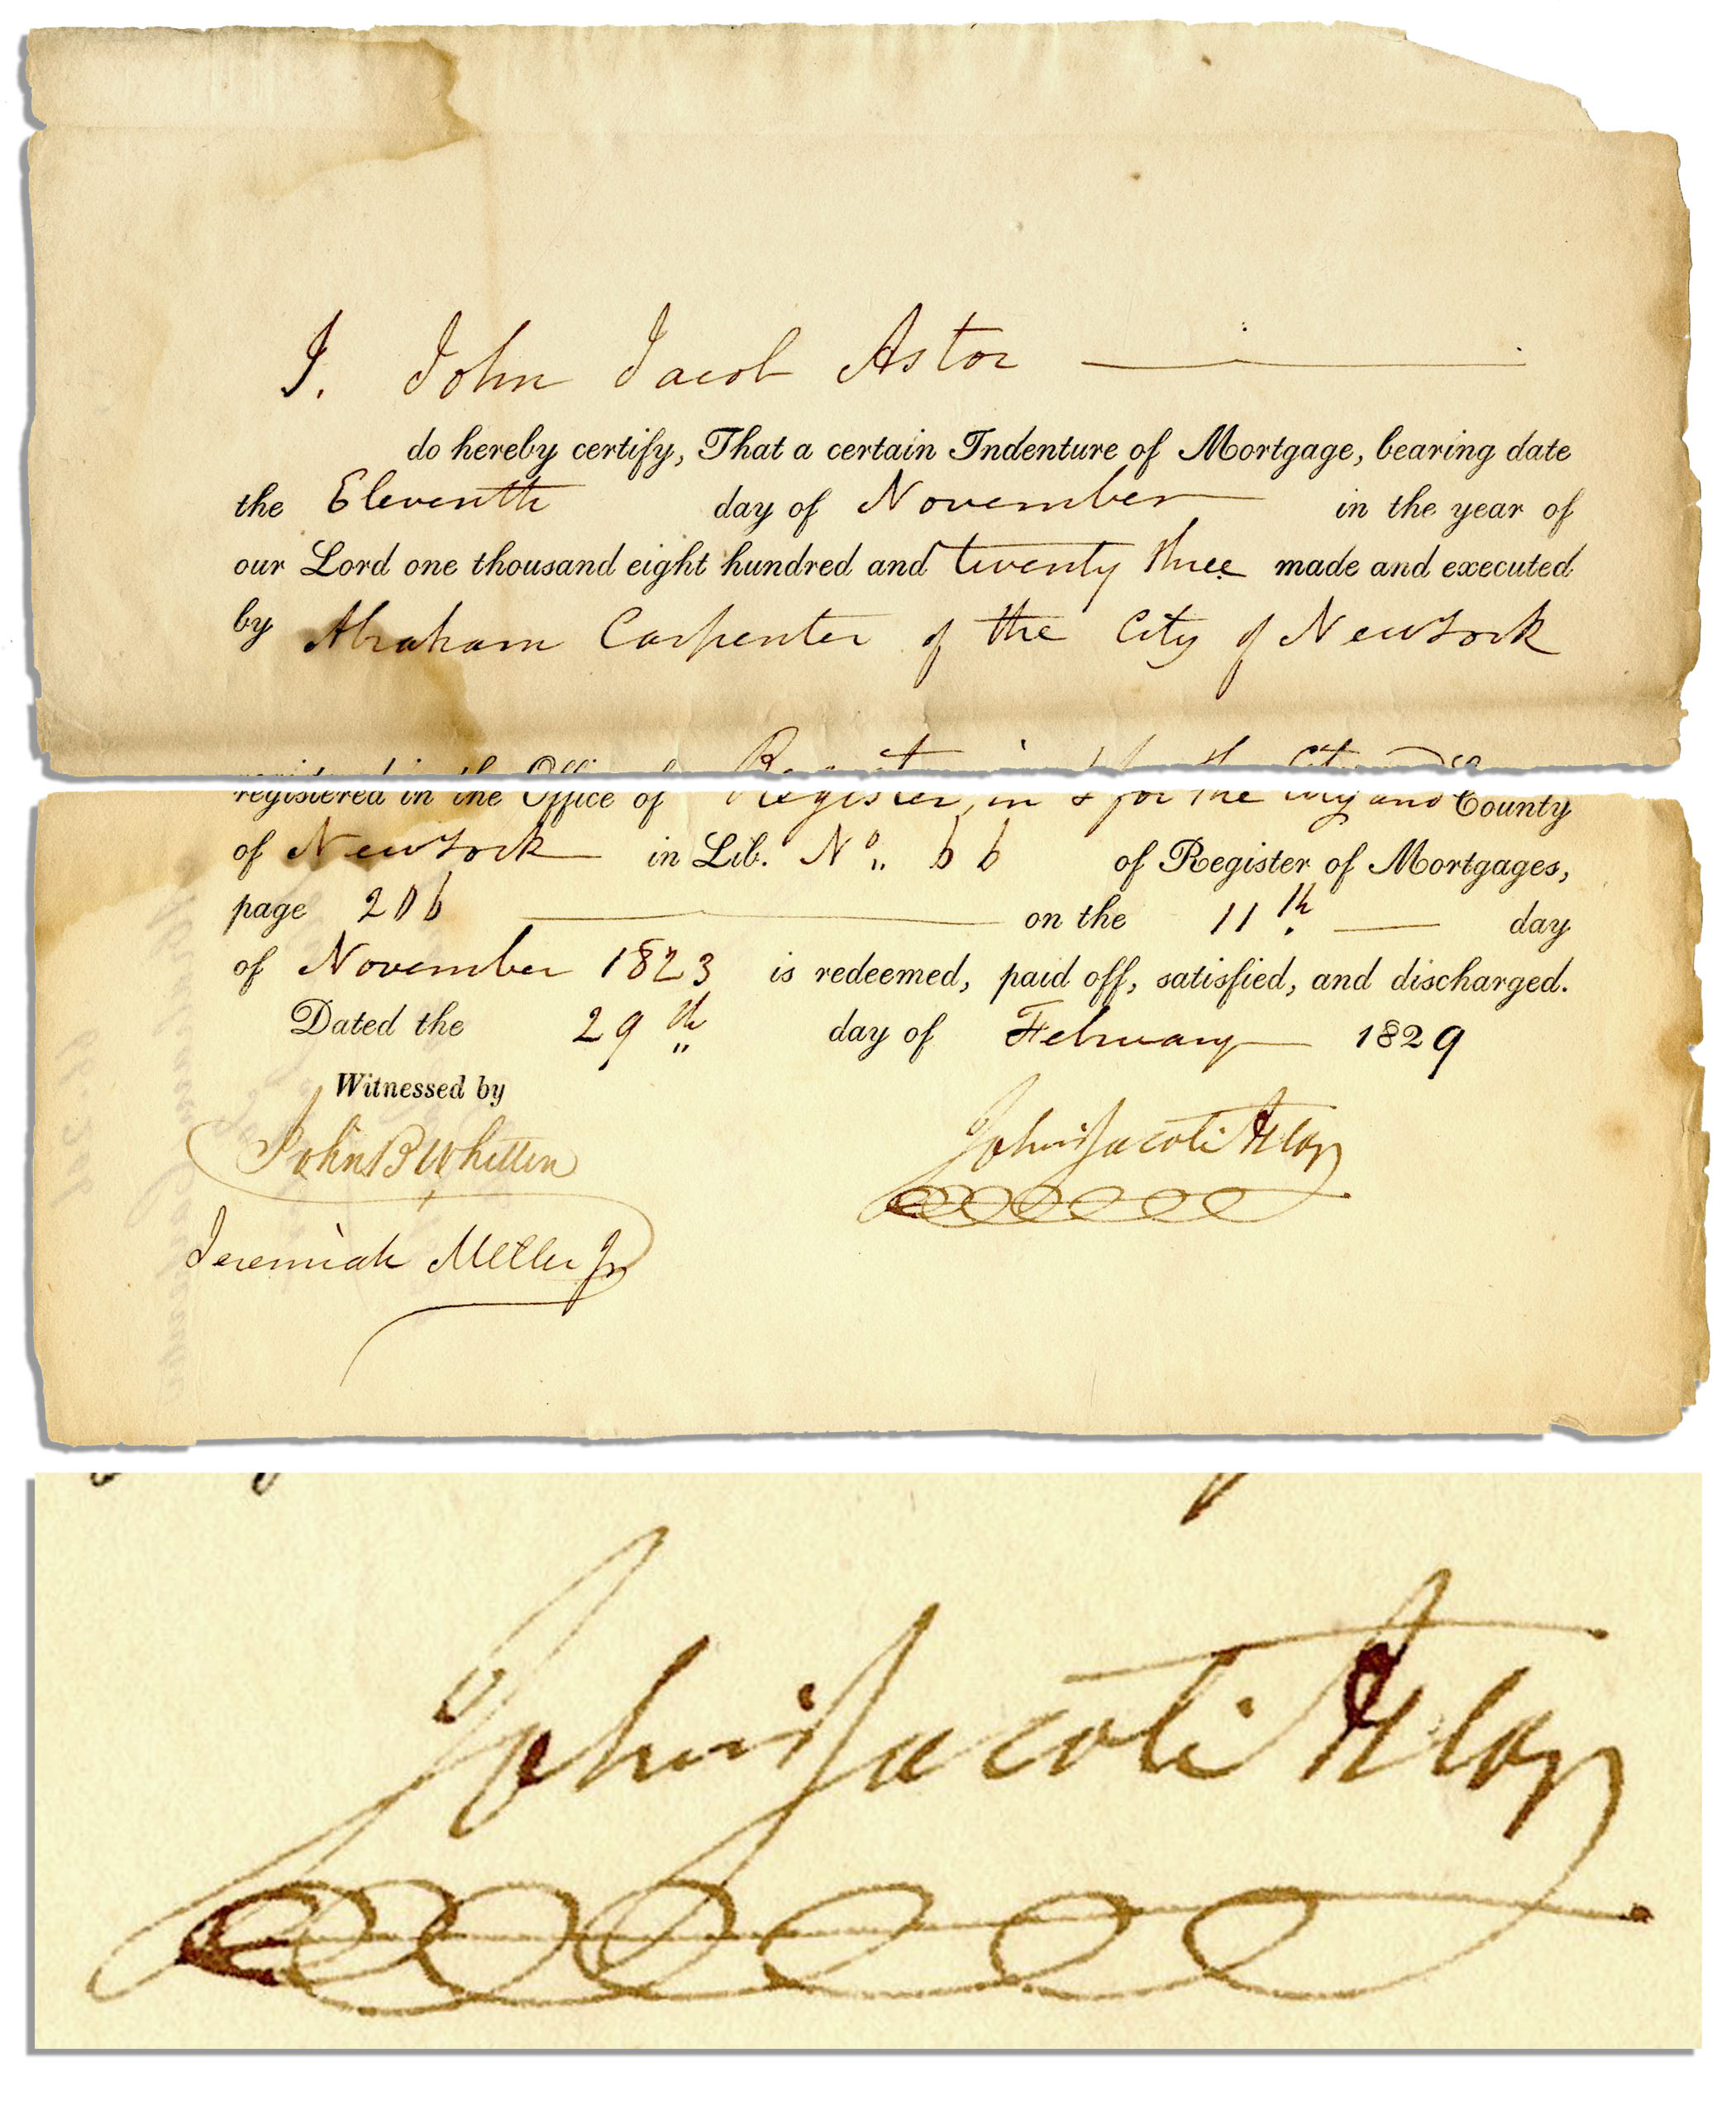 I. John Jacob Astor
do hereby certify, That a certain Indenture of Mortgage, bearing date
the Eleventh day of November in the year of
our Lord one thousand eight hundred and twenty three made and executed
by Abraham Carpenter of the City of New York
registered in the Office of Register, in & for the City and County
of New York in Lib. No. 66 of Register of Mortgages,
page 206 on the 11th day
of November 1823 is redeemed, paid off, satisfied, and discharged.
Dated the 29th day of February 1829
Witnessed by
John B Whitten
John Jacob Astor
Jeremiah Miller Jr
John Jacob Astor